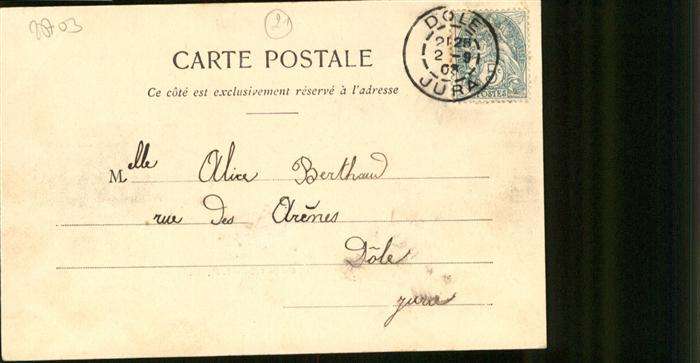 21
CARTE POSTALE
Ce côté est exclusivement réservé à l'adresse
DOLE
JURA
POSTES
Melle Alice Berthaud
rue des Arênes
Dôle
Jura